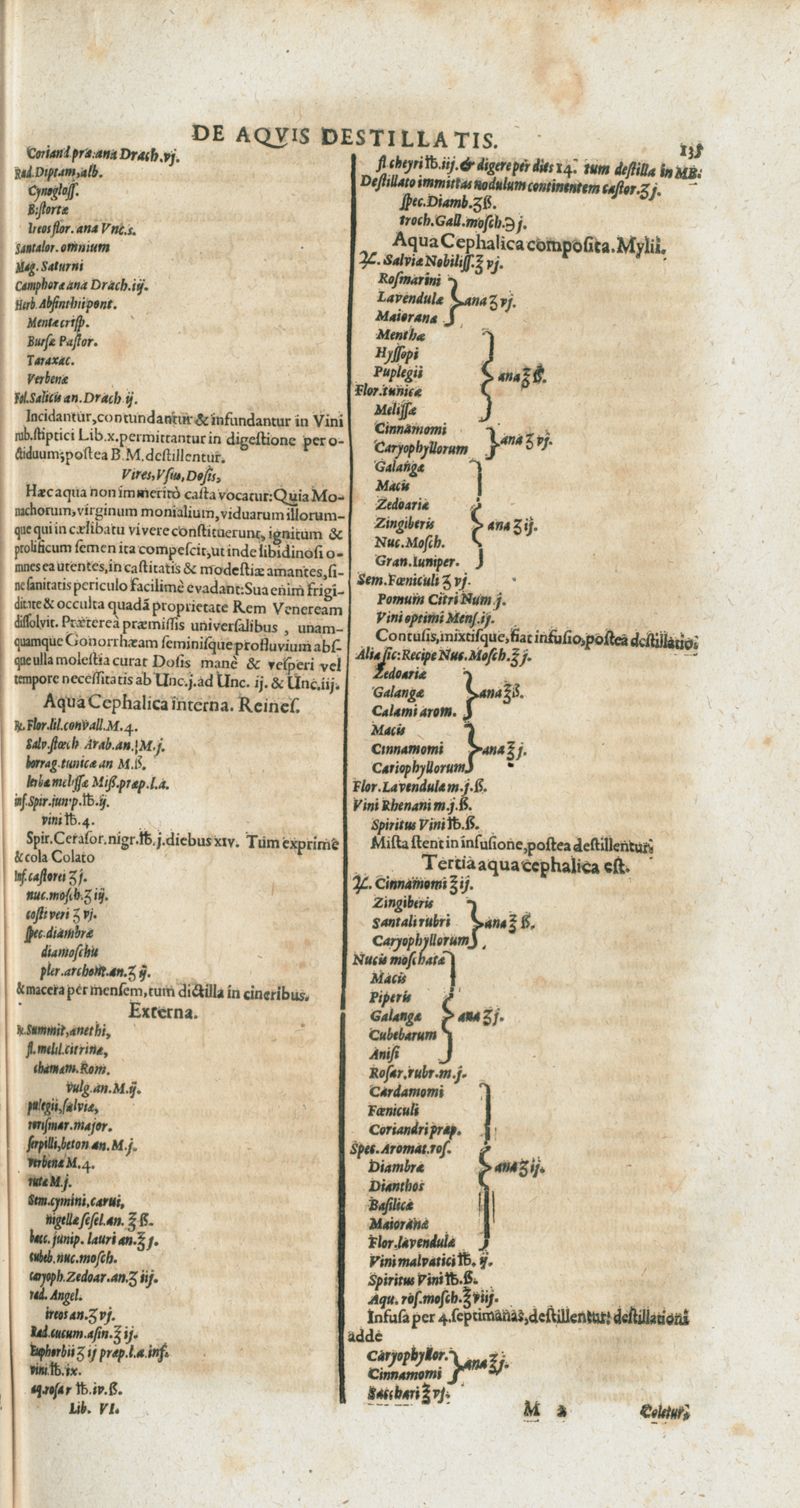 DE AQVIS DESTILLATIS.
135
Coriand præ. ana Drach. vj.
Rad. Diptam, alb.
Cynogloſſ.
Biſtortæ
Ireos flor. ana Vnc. s.
Santalor. omnium
Mag. Saturni
Camphoræ ana Drach. iij.
Herb. Abſinthii pont.
Mentæ criſp.
Burſæ Paſtor.
Taraxac.
Verbenæ
Fol. Salicis an. Drach ij.
Incidantur, contundantur & infundantur in Vini
rub. ſtiptici Lib. x. permittantur in digeſtione per o-
ctiduum; poſtea B. M. deſtillentur.
Vires, Vſus, Doſis,
Hæc aqua non immeritò caſta vocatur: Quia Mo-
nachorum, virginum monialium, viduarum illorum-
que qui in cælibatu vivere conſtituerunt, ignitum &
prolificum ſemen ita compeſcit, ut inde libidinoſi o-
mnes ea utentes, in caſtitatis & modeſtiæ amantes, ſi-
ne ſanitatis periculo facilimè evadant: Sua enim frigi-
ditate & occulta quadã proprietate Rem Veneream
diſſolvit. Præterea præmiſſis univerſalibus, unam-
quamque Gonorrhæam ſeminiſque profluvium abſ-
que ulla moleſtia curat Doſis manè & veſperi vel
tempore neceſſitatis ab Unc. j. ad Unc. ij. & Unc. iij.
Aqua Cephalica interna. Reineſ.
℞. Flor. lil. convall. M. 4.
Salv. ſtœch Arab. an. M. j.
borrag. tunicæ an M. ß.
herbæ meliſſæ Miß. præp. l. a.
inf. Spir. jun. p. ℔. ij.
vini ℔. 4.
Spir. Ceraſor. nigr. ℔. j. diebus xiv. Tum exprime
& cola Colato
Inf. caſtorei ʒ j.
nuc. moſch. ʒ iij.
coſti veri ʒ vj.
ſpec. diambræ
diamoſchu
pler. archont. an. ʒ ij.
& macera per menſem, tum diſtilla in cineribus.
Externa.
℞. Summit, anethi,
fl. melil. citrinæ,
chamam. Rom.
vulg. an. M. ij.
pulegii, ſalviæ,
roriſmar. major.
ſerpilli, beton an. M. j.
verbenæ M. 4.
rutæ M. j.
Sem. cymini, carui,
nigellæ ſeſel. an. ℥ ß.
bacc. junip. lauri an. ℥ j.
cubeb. nuc. moſch.
caryoph. Zedoar. an. ʒ iij.
rad. Angel.
ireos an. ʒ vj.
Rad. cucum. aſin. ℥ ij.
Euphorbii ʒ ij præp. l. a. inf.
vini. ℔. ix.
aq. roſar ℔. iv. ß.
Lib. VI.
fl. cheyri ℔. iij. & digere per dies 14. tum deſtilla in MB.
Deſtillato immittas nodulum continentem caſtor. ʒ j.
ſpec. Diamb. ʒ ß.
troch. Gall. moſch. ℈ j.
Aqua Cephalica compoſita. Mylii.
℞. Salviæ Nobiliſſ. ℥ vj.
Roſmarini
Lavendulæ ana ʒ vj.
Maioranæ
Menthæ
Hyſſopi
Puplegii ana ℥ ß.
Flor. tunicæ
Meliſſæ
Cinnamomi
Caryophyllorum ana ʒ vj.
Galangæ
Macis
Zedoariæ
Zingiberis ana ʒ ij.
Nuc. Moſch.
Gran. Iuniper.
Sem. Fœniculi ʒ vj.
Pomum Citri Num. j.
Vini optimi Menſ. ij.
Contuſis, mixtiſque, fiat infuſio, poſtea deſtillatio.
Alia ſic: Recipe Nuc. Moſch. ℥ j.
Zedoariæ
Galangæ ana ℥ ß.
Calami arom.
Macis
Cinnamomi ana ℥ j.
Cariophyllorum
Flor. Lavendulæ m. j. ß.
Vini Rhenani m. j. ß.
Spiritus Vini ℔. ß.
Miſta ſtent in infuſione, poſtea deſtillentur.
Tertia aqua cephalica eſt.
℞. Cinnamomi ℥ ij.
Zingiberis
Santali rubri ana ℥ ß.
Caryophyllorum
Nucis moſchatæ
Macis
Piperis
Galangæ ana ʒ j.
Cubebarum
Aniſi
Roſar. rubr. m. j.
Cardamomi
Fœniculi
Coriandri præp.
Spec. Aromat. roſ.
Diambræ ana ʒ ij.
Dianthos
Baſilicæ
Maioranæ
Flor. lavendulæ
Vini malvatici ℔. ij.
Spiritus Vini ℔. ß.
Aqu. roſ. moſch. ℥ viij.
Infuſa per 4. ſeptimanas, deſtillentur: deſtillationi
adde
Caryophyllor.
Cinnamomi ana ℥ j.
Sacchari ℥ vj.
M 2
Coletur